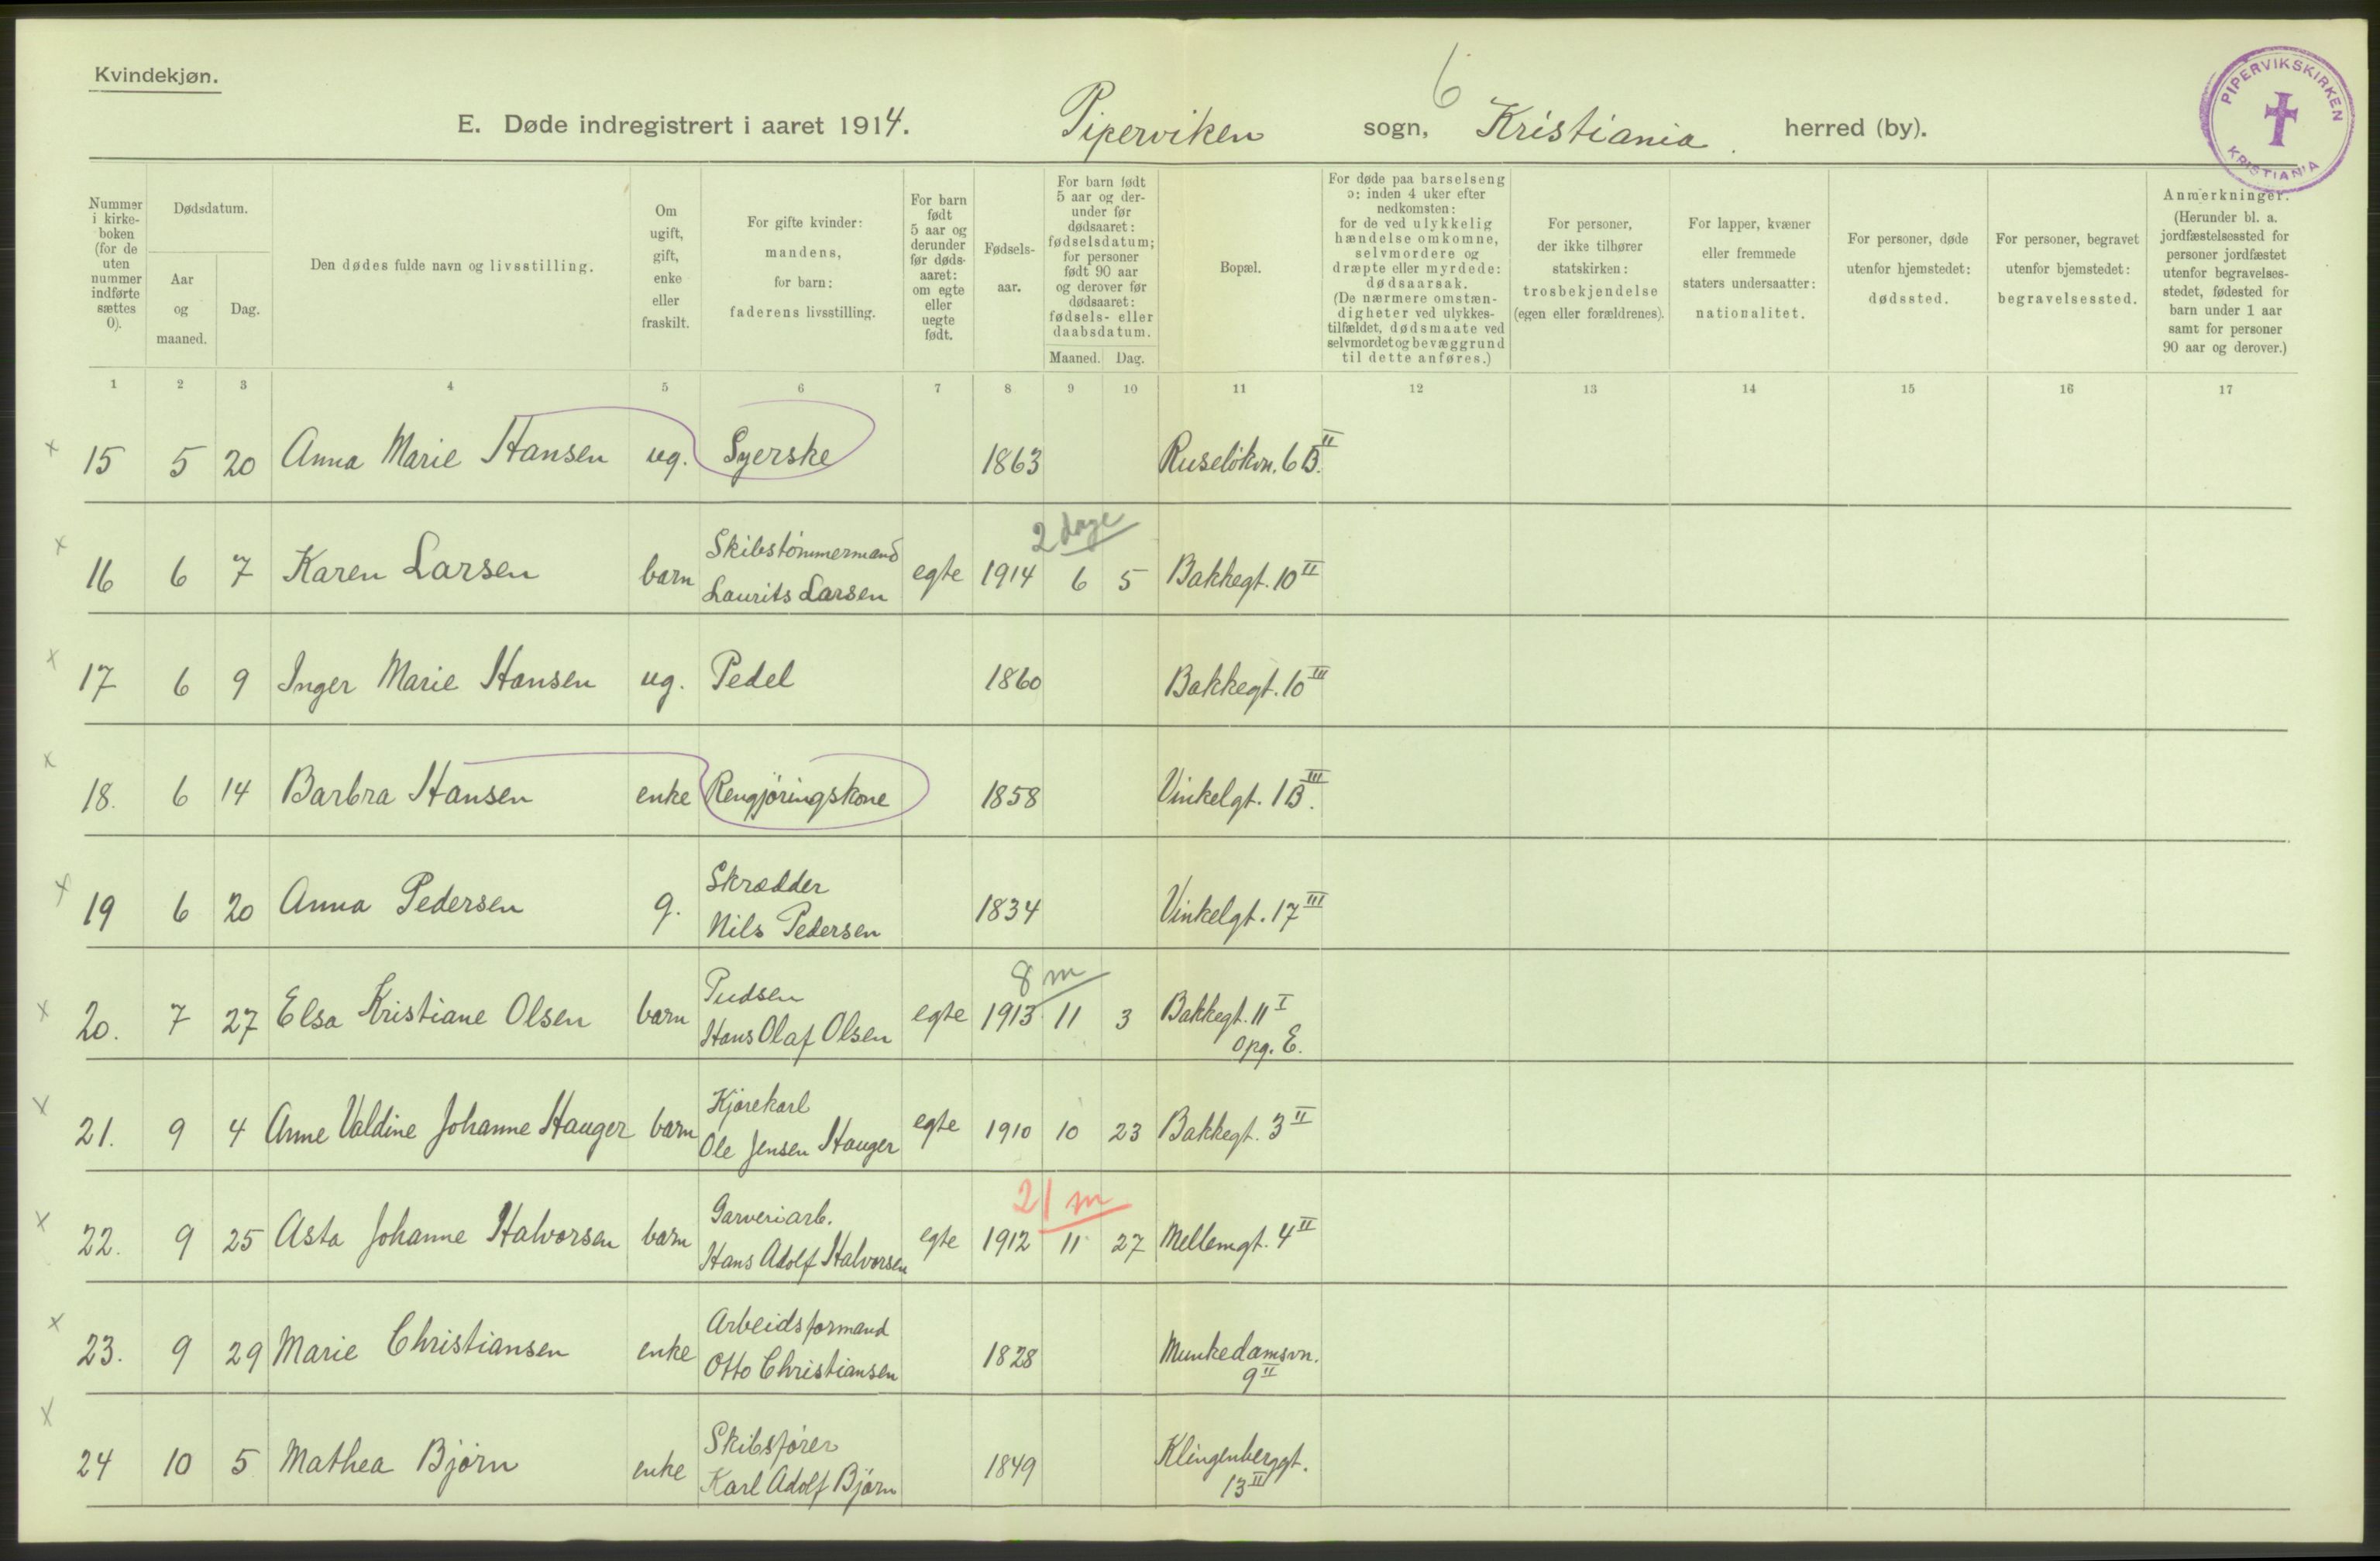 Kvindekjøn.
6
E. Døde indregistrert i aaret 1914. Piperviken sogn, Kristiania herred (by).
PIPERVIKSKIRKEN KRISTIANIA
Nummer i kirke-boken (for de uten nummer indførte sættes 0).
Dødsdatum.
Aar og maaned.
Dag.
Den dødes fulde navn og livsstilling.
Om ugift, gift, enke eller fraskilt.
For gifte kvinder: mandens, for barn: faderens livsstilling.
For barn født 5 aar og derunder før døds-aaret: om egte eller uegte født.
Fødsels-aar.
For barn født 5 aar og der-under før dødsaaret: fødselsdatum; for personer født 90 aar og derover før dødsaaret: fødsels- eller daabsdatum.
Maaned. Dag.
Bopæl.
For døde paa barselseng ɔ: inden 4 uker efter nedkomsten: for de ved ulykkelig hændelse omkomne, selvmordere og dræpte eller myrdede: dødsaarsak. (De nærmere omstæn-digheter ved ulykkes-tilfældet, dødsmaate ved selvmordet og bevæggrund til dette anføres.)
For personer, der ikke tilhører statskirken: trosbekjendelse (egen eller forældrenes).
For lapper, kvæner eller fremmede staters undersaatter: nationalitet.
For personer, døde utenfor hjemstedet: dødssted.
For personer, begravet utenfor hjemstedet: begravelsessted.
Anmerkninger. (Herunder bl. a. jordfæstelsessted for personer jordfæstet utenfor begravelses-stedet, fødested for barn under 1 aar samt for personer 90 aar og derover.)
1 2 3 4 5 6 7 8 9 10 11 12 13 14 15 16 17
x 15 5 20 Anna Marie Hansen ug. Syerske 1863 Ruseløkvn. 6 B. II
2 dage
x 16 6 7 Karen Larsen barn Skibstømmermand Laurits Larsen egte 1914 6 5 Bakkegt. 10 II
x 17 6 9 Inger Marie Hansen ug. Pedel 1860 Bakkegt. 10 III
x 18. 6 14 Barbra Hansen enke Rengjøringskone 1858 Vinkelgt. 1 B. III
x 19 6 20 Anna Pedersen g. Skrædder Nils Pedersen 1834 Vinkelgt. 17 III
8 m
x 20. 7 27 Elsa Kristiane Olsen barn Pudsen Hans Olaf Olsen egte 1913 11 3 Bakkegt. 11 I opg. E.
x 21. 9 4 Anne Valdine Johanne Hauger barn Kjørekarl Ole Jensen Hauger egte 1910 10 23 Bakkegt. 3 II
21 m
x 22. 9 25 Asta Johanne Halvorsen barn Garveriarb. Hans Adolf Halvorsen egte 1912 11 27 Mellemgt. 4 II
x 23. 9 29 Marie Christiansen enke Arbeidsformand Otto Christiansen 1828 Munkedamsvn. 9 II
x 24 10 5 Mathea Bjørn enke Skibsfører Karl Adolf Bjørn 1849 Klingenberggt. 13 II